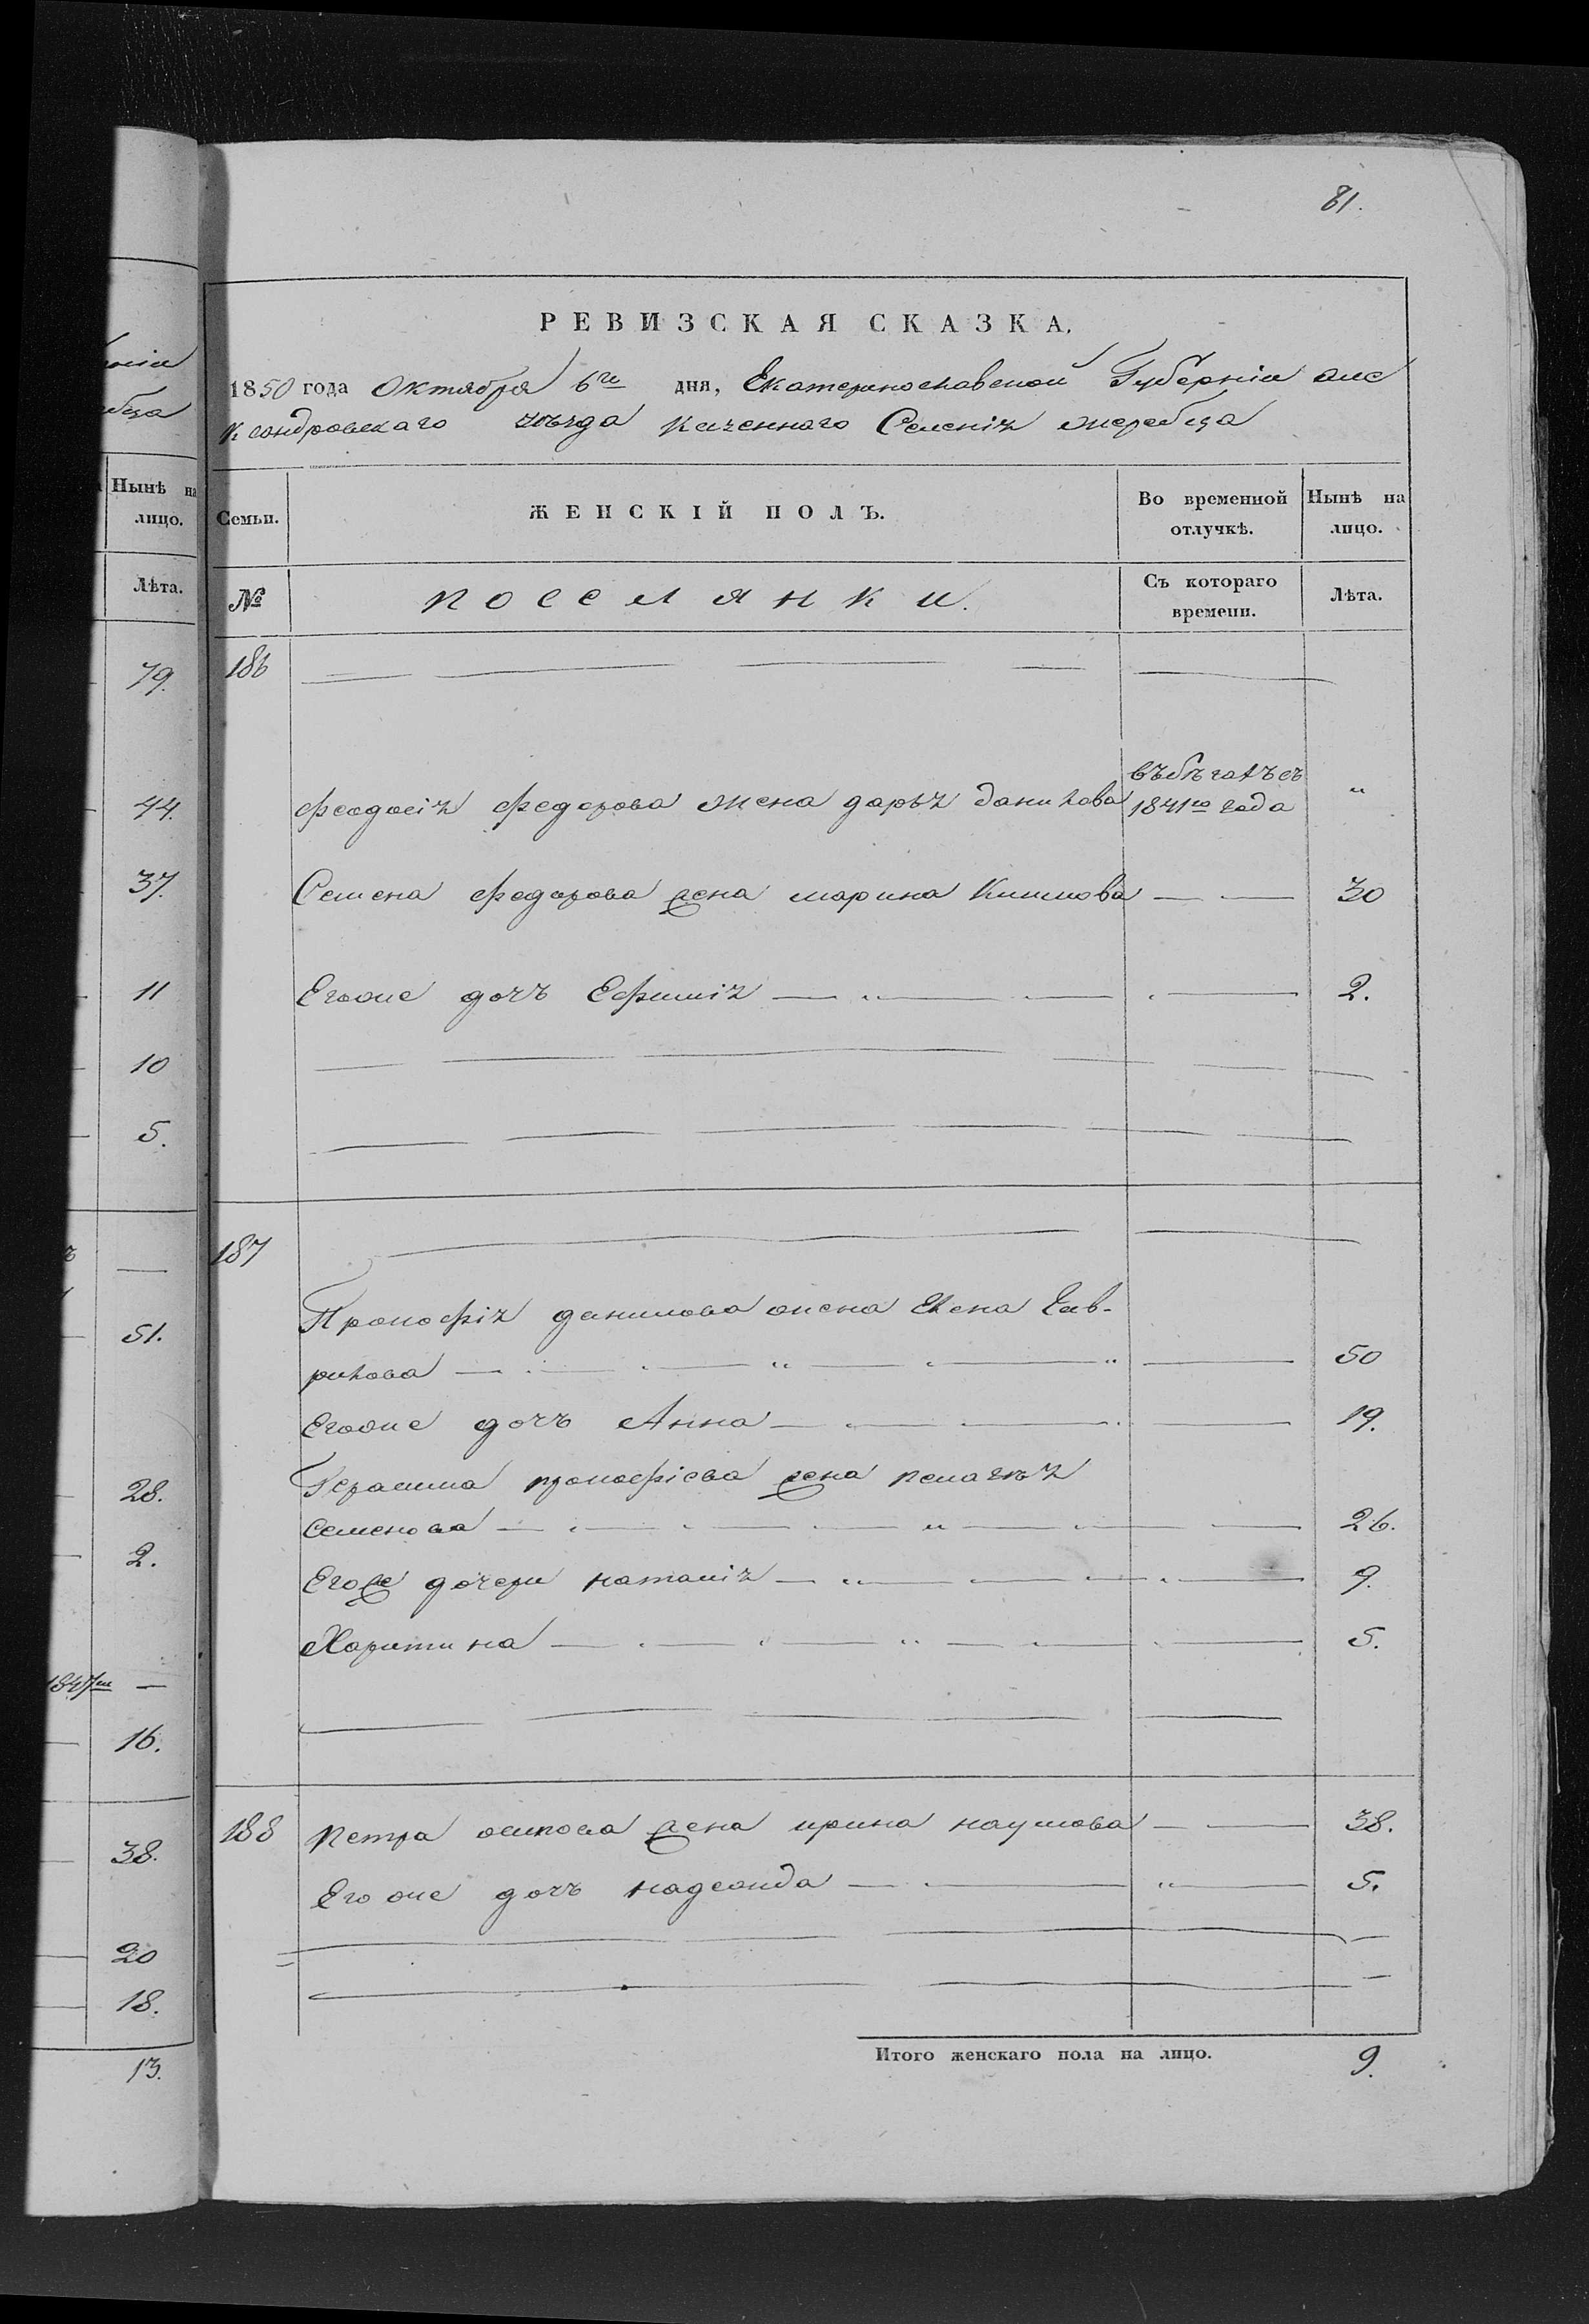 81.
РЕВИЗСКАЯ СКАЗКА.
1850 года Октября 6го дня, Екатеринославской Губерніи Але
ксандровскаго уѣзда казенного Селенія жеребца
Нынѣ на лицо.
Лѣта.
Семьи.
ЖЕНСКІЙ ПОЛЪ.
Во временной отлучкѣ.
Нынѣ на лицо.
№
поселянки.
Съ котораго времени.
Лѣта.
79.
44.
37.
11
10
5.
51.
28.
2.
16.
38.
20
18.
13.
186
феодосія федорова жена дарья данилова въ бѣгахъ съ 1841го года "
Семена федорова жена марина Климова 30
Егоже дочь Ефимія 2.
187
Прокофія данилова жена Елена Гав-
рилова 50
Егоже дочь Анна 19.
Герасима прокофіева жена пелагѣя
Семенова 26.
Егоже дочери наталія 9.
Харитина 5.
188 петра осипова жена ирина наумова 38.
Егоже дочь надежда 5.
Итого женскаго пола на лицо. 9.